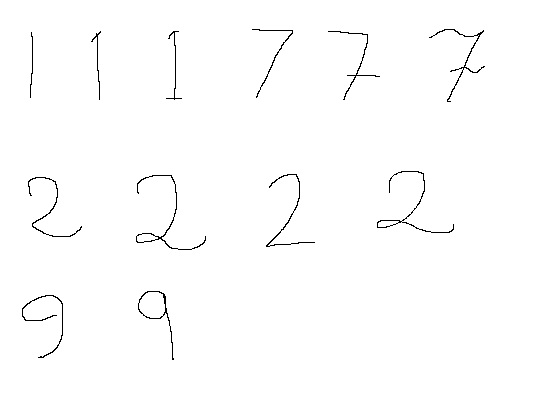 1 1 1 7 7 7
2 2 2 2
9 9